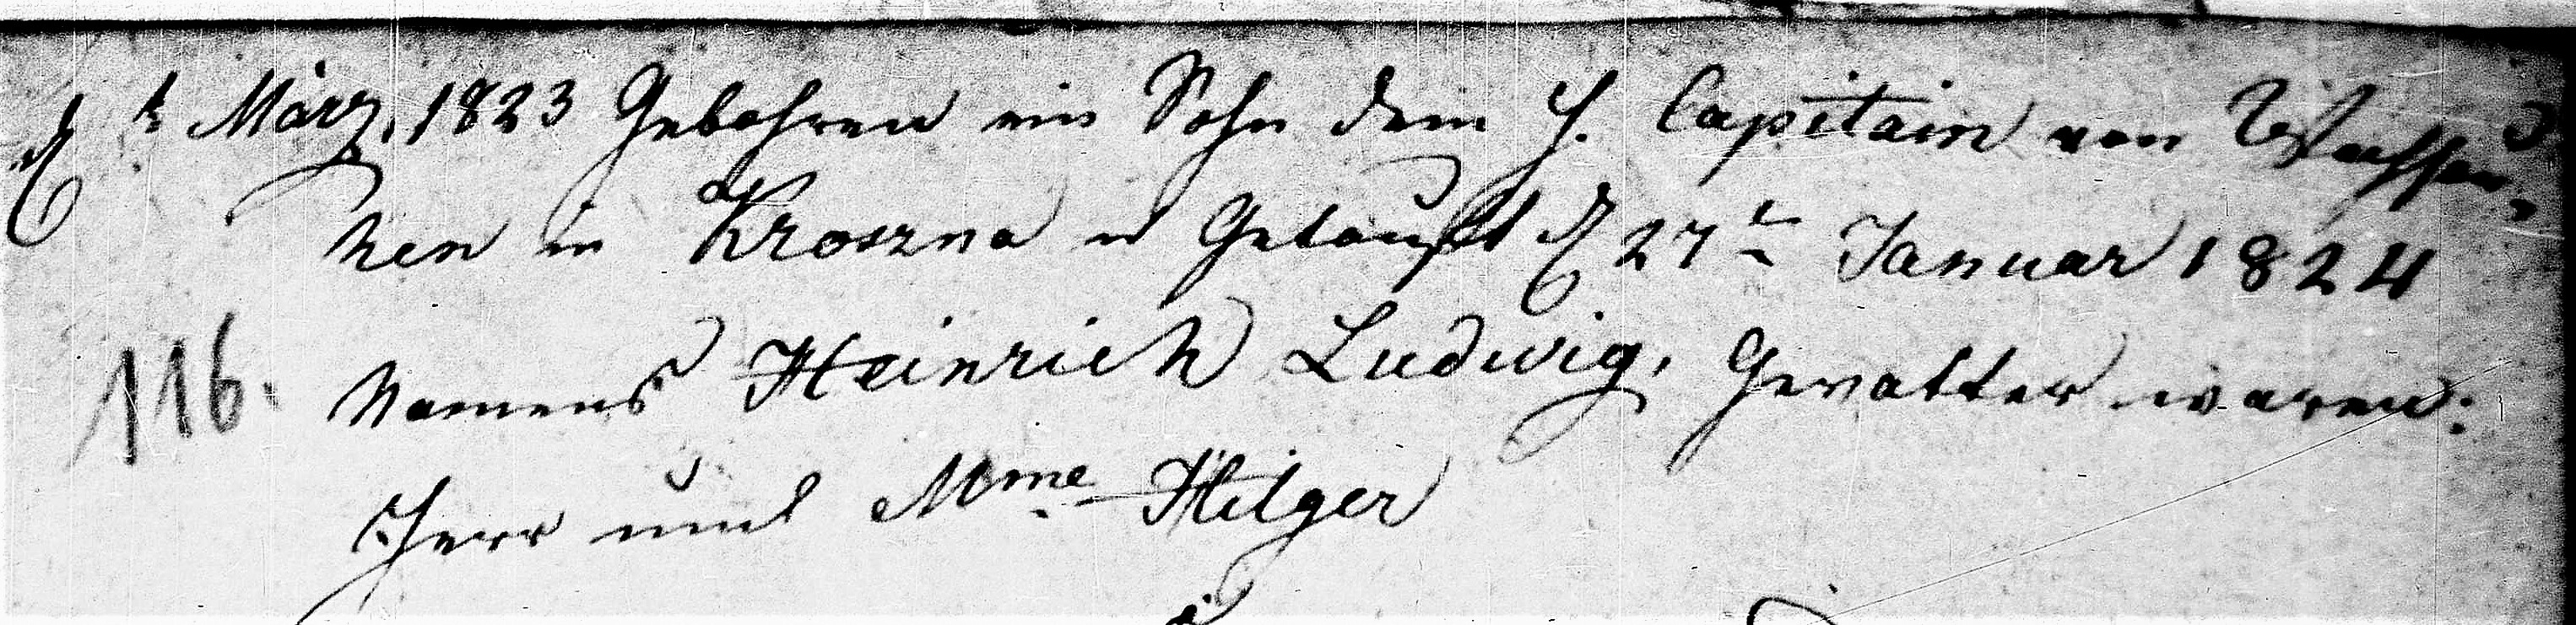 März, 1823 Gebohren ein Sohn dem H. Capitain von
hen in Kroszna u Getauft d 27t Januar 1824
116. Namens Heinrich Ludwig, Gevatter waren:
Herr und Mme Hilger